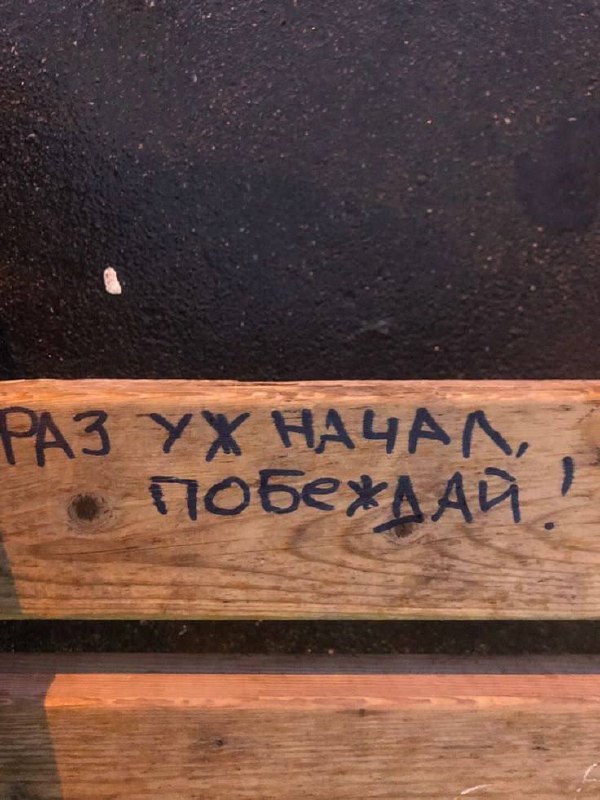 РАЗ УЖ НАЧАЛ,
ПОБЕЖДАЙ!